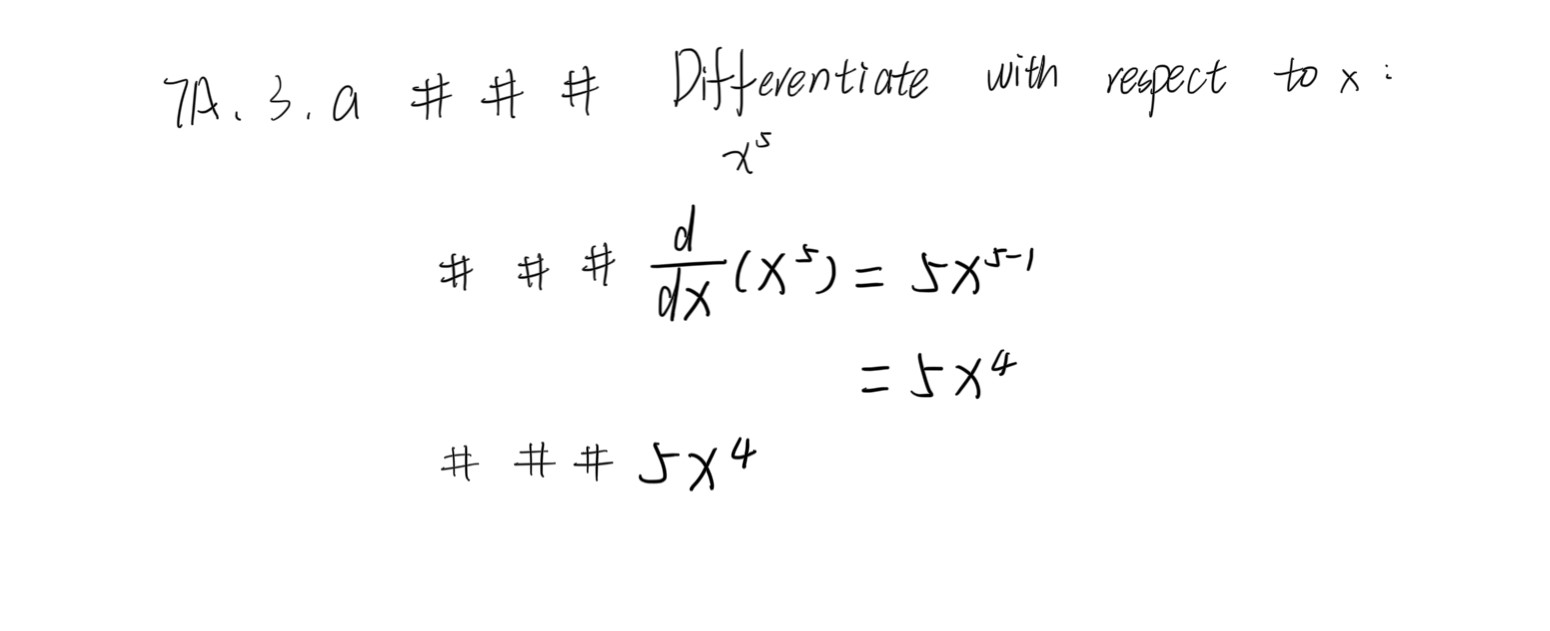 7A. 3. a # # # Differentiate with respect to x :
x⁵
# # # d/dx (x⁵) = 5x⁵⁻¹
= 5x⁴
# # # 5x⁴